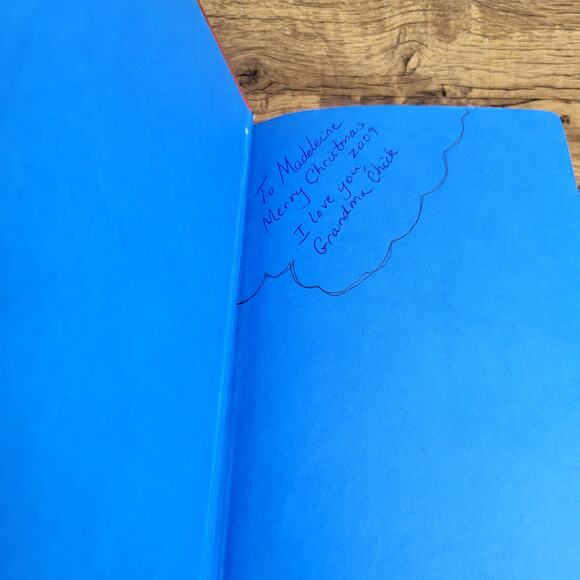 To Madeleine
Merry Christmas
2009
I love you,
Grandma Chick